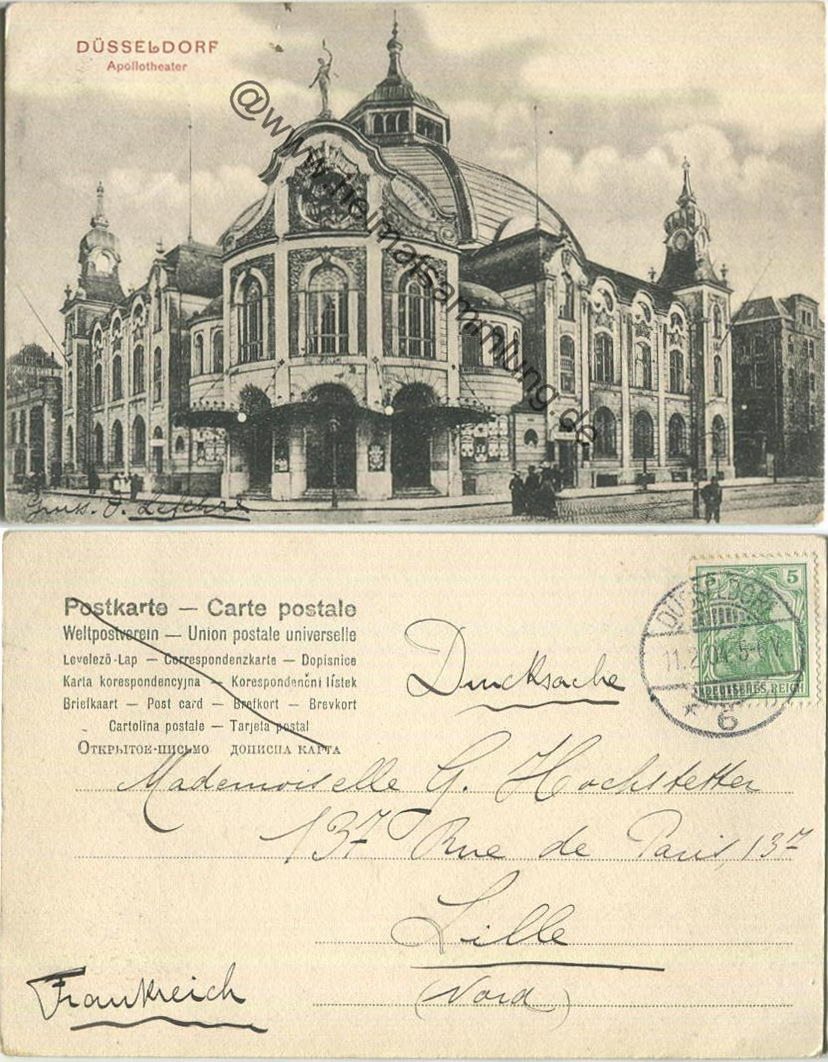 DÜSSELDORF
Apollotheater
@www.heimatsammlung.de
Gruss. J. Lefebre
Postkarte — Carte postale
Weltpostverein — Union postale universelle
Levelező-Lap — Correspondenzkarte — Dopisnice
Karta korespondencyjna — Korespondenční lístek
Briefkaart — Post card — Brefkort — Brevkort
Cartolina postale — Tarjeta postal
Открытое-письмо дописна карта
Drucksache
5
DEUTSCHES REICH
DÜSSELDORF
11.2.04. 5-6 N.
* 6
Mademoiselle G. Hochstetter
137 Rue de Paris, 137
Lille
(Nord)
Frankreich